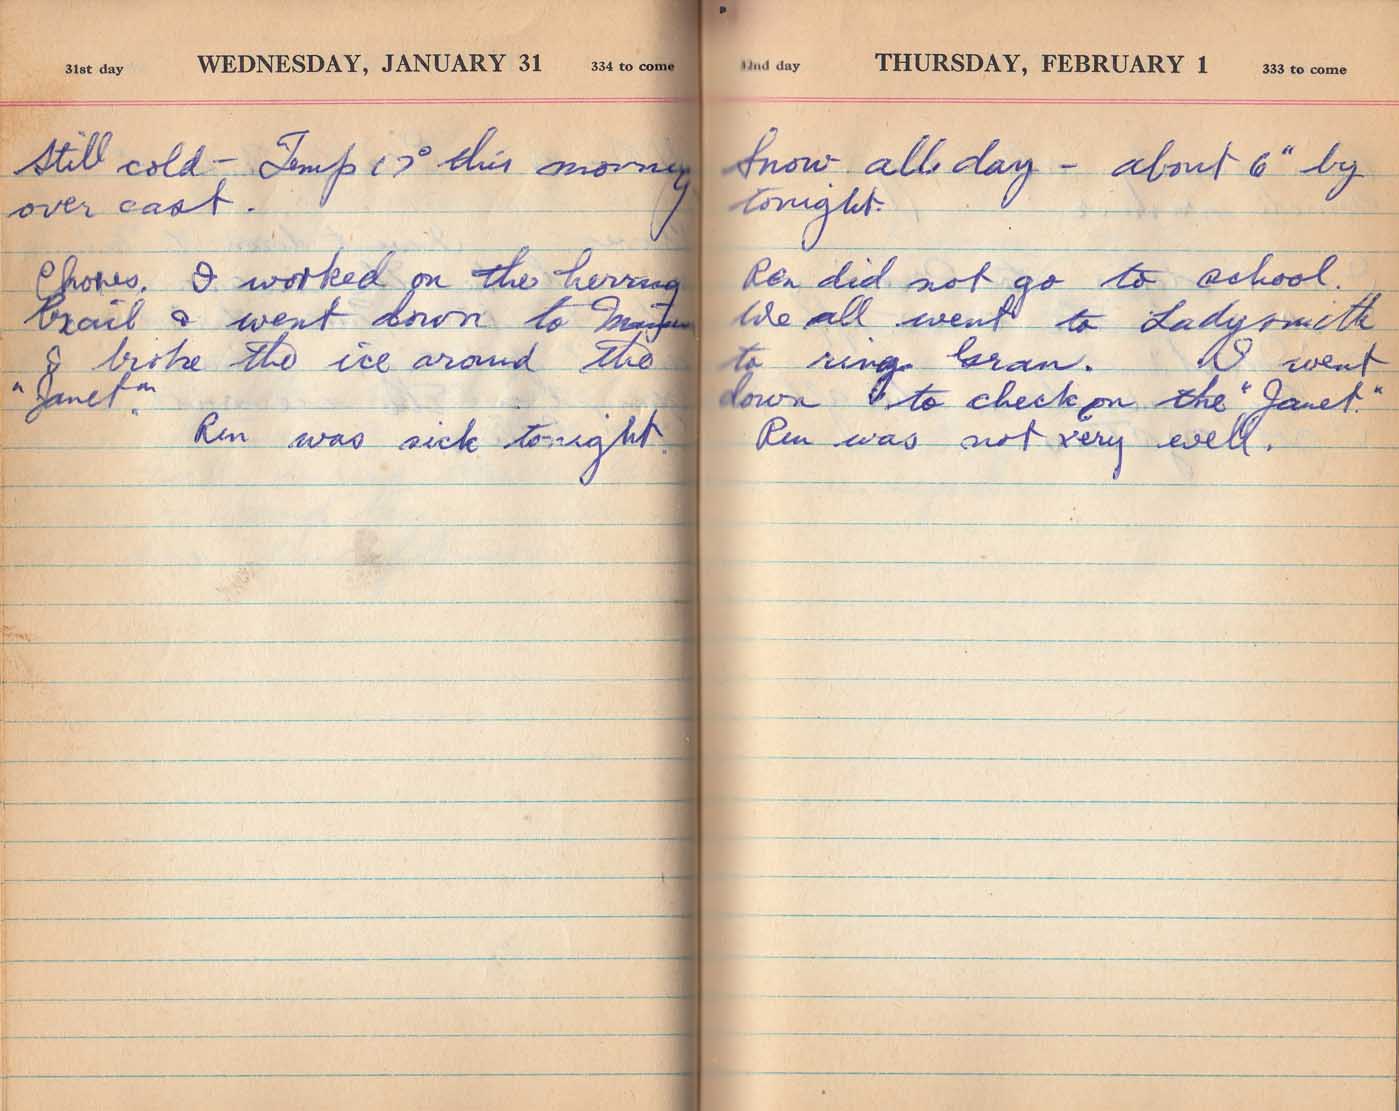 31st day WEDNESDAY, JANUARY 31 334 to come
Still cold - Temp 17° this morning
over cast.
Chores. I worked on the herring
brail & went down to
& broke the ice around the
"Janet".
Ren was sick tonight.
32nd day THURSDAY, FEBRUARY 1 333 to come
Snow all day - about 6" by
tonight.
Ren did not go to school.
We all went to Ladysmith
to ring Gran. I went
down to check on the "Janet."
Ren was not very well.